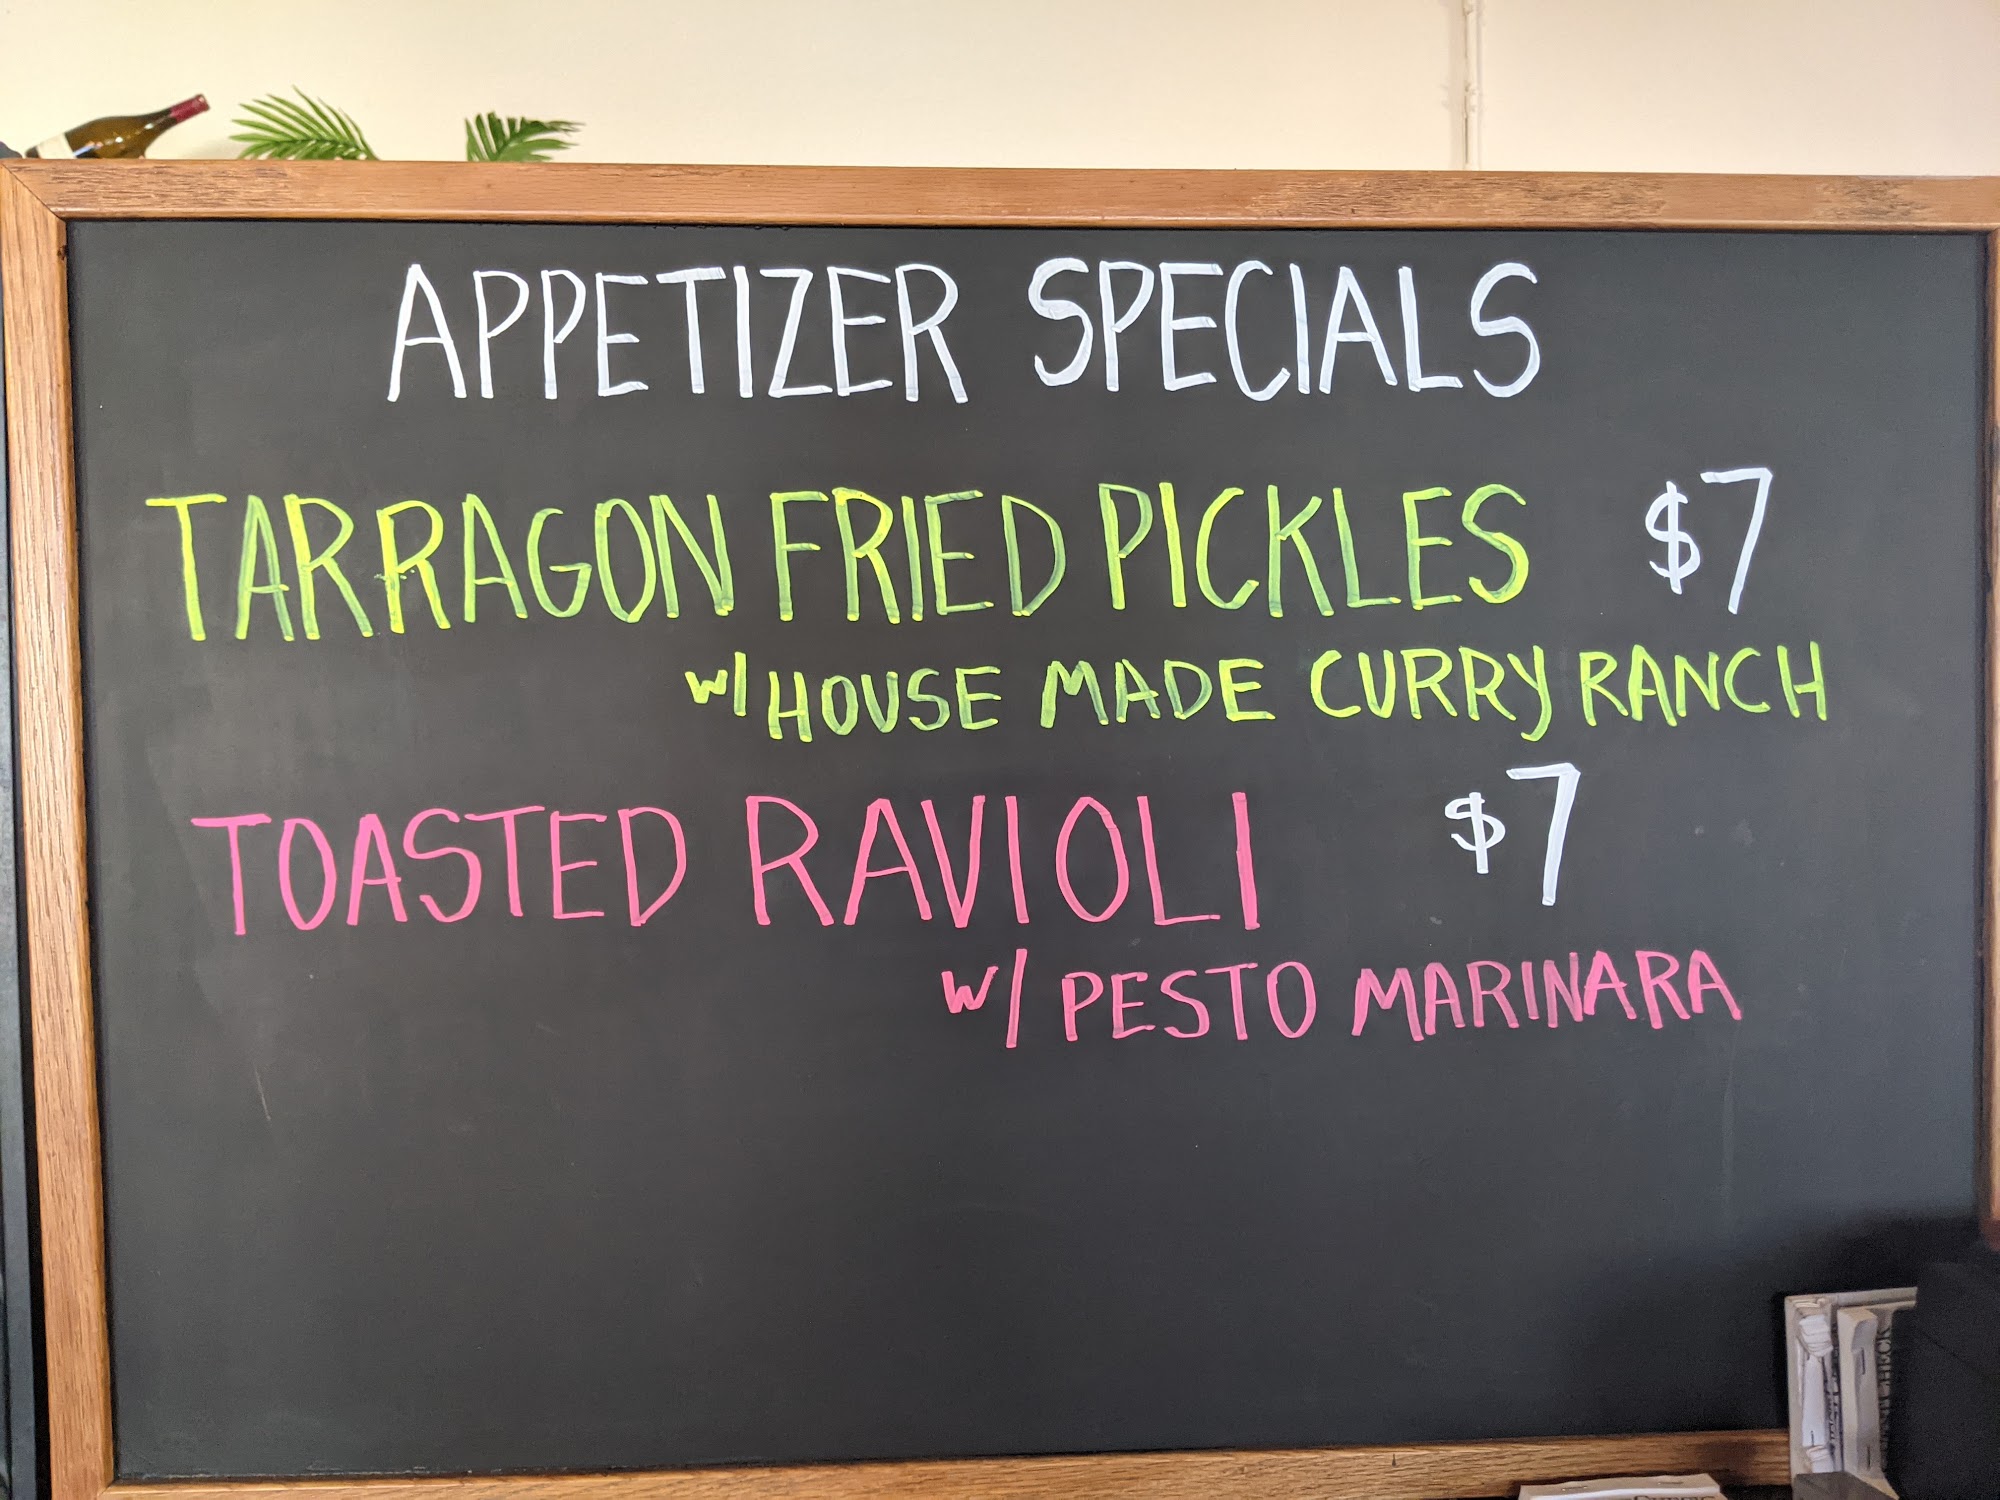 APPETIZER SPECIALS
TARRAGON FRIED PICKLES $7
w/ HOUSE MADE CURRY RANCH
TOASTED RAVIOLI $7
w/ PESTO MARINARA